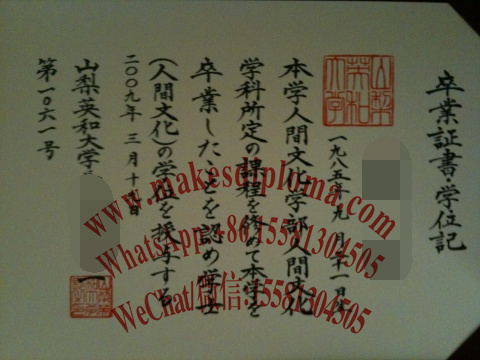 卒業証書・学位記
山梨英和大学
一九八五年九月
本学人間文化学部人間文化
学科所定の課程を修めて本学を
卒業したことを認め学士
(人間文化)の学位を授与する
二〇〇九年三月十
山梨英和大学
第一〇六一号
www.makesdiploma.com
WhatsApp:+8615581304505
WeChat/微信:15581304505